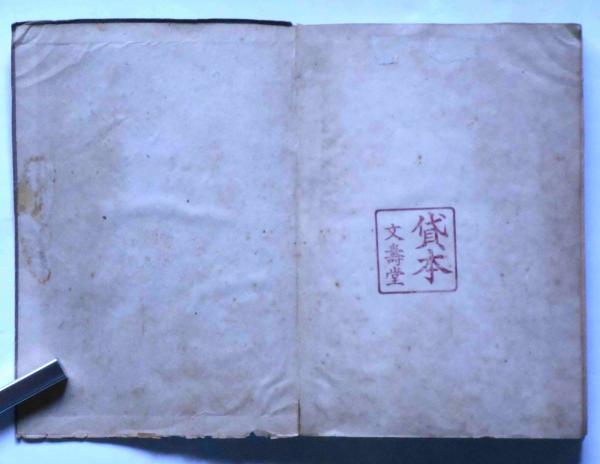 貸本
文壽堂